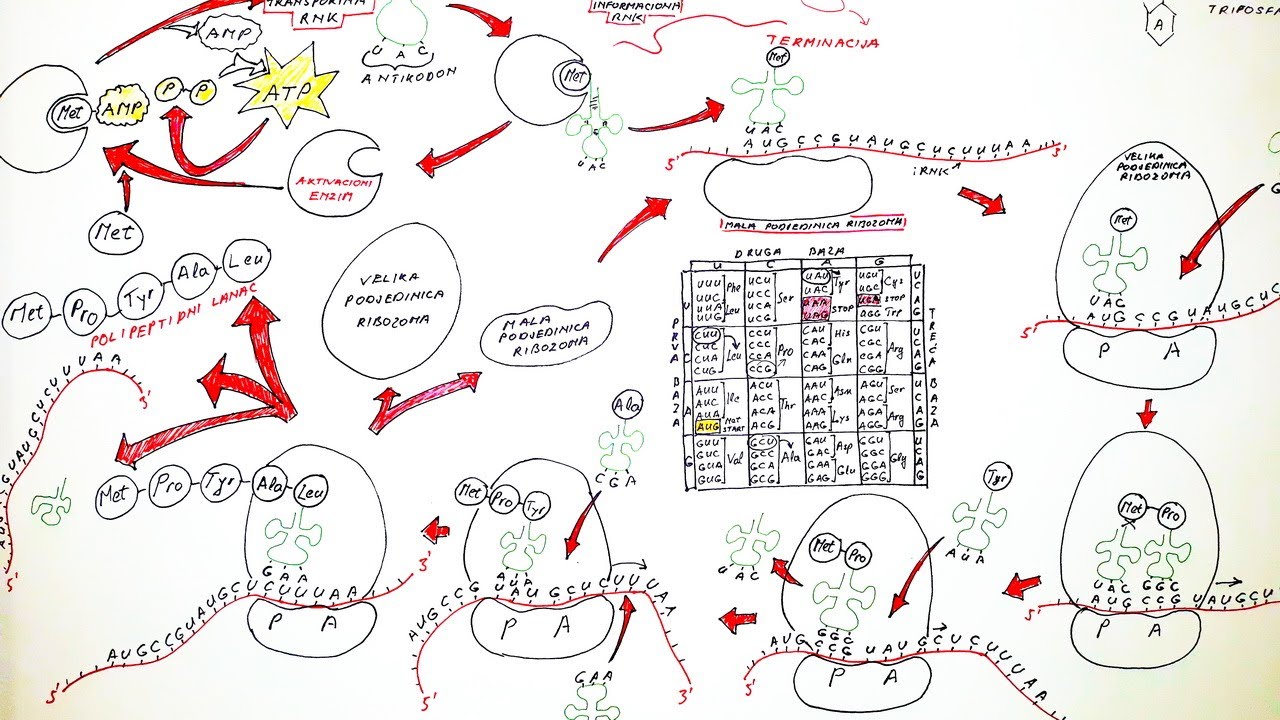 TRANSPORTNA
RNK
INFORMACIONA
RNK
A
AMP
U A C
ANTIKODON
Met
AMP
P
P
ATP
Met
UAC
TERMINACIJA
Met
UAC
AUGCCGUAUGCUCUUUAA
5'
3'
iRNK
MALA PODJEDINICA RIBOZOMA
AKTIVACIONI
ENZIM
Met
VELIKA
PODJEDINICA
RIBOZOMA
Met
UAC
AUGCCGUAUGCUC
5'
P A
Met
Pro
Tyr
Ala
Leu
POLIPEPTIDNI LANAC
VELIKA
PODJEDINICA
RIBOZOMA
MALA
PODJEDINICA
RIBOZOMA
DRUGA BAZA
U C A G
PRVA BAZA
TREĆA BAZA
U
UUU
UUC
Phe
UUA
UUG
Leu
UCU
UCC
UCA
UCG
Ser
UAU
UAC
Tyr
UAA
UAG
STOP
UGU
UGC
Cys
UGA STOP
AGG Trp
U C A G
C
CUU
CUC
CUA
CUG
Leu
CCU
CCC
CCA
CCG
Pro
CAU
CAC
His
CAA
CAG
Gln
CGU
CGC
CGA
CGG
Arg
U C A G
A
AUU
AUC
AUA
Ile
AUG
MET
START
ACU
ACC
ACA
ACG
Thr
AAU
AAC
Asn
AAA
AAG
Lys
AGU
AGC
Ser
AGA
AGG
Arg
U C A G
G
GUU
GUC
GUA
GUG
Val
GCU
GCC
GCA
GCG
Ala
GAU
GAC
Asp
GAA
GAG
Glu
GGU
GGC
GGA
GGG
Gly
U C A G
3'
5'
Met
Pro
Tyr
Ala
Leu
GAA
AUGCCGUAUGCUCUUUAA
5'
3'
P A
Ala
CGA
Met
Pro
Tyr
AUA
AUGCCGUAUGCUCUUUAA
5'
3'
P A
GAA
UAC
Met
Pro
GGC
AUGCCGUAUGCUCUUUAA
5'
P A
Tyr
AUA
Met
Pro
UAC GGC
AUG CCG UAUGCU
5'
P A